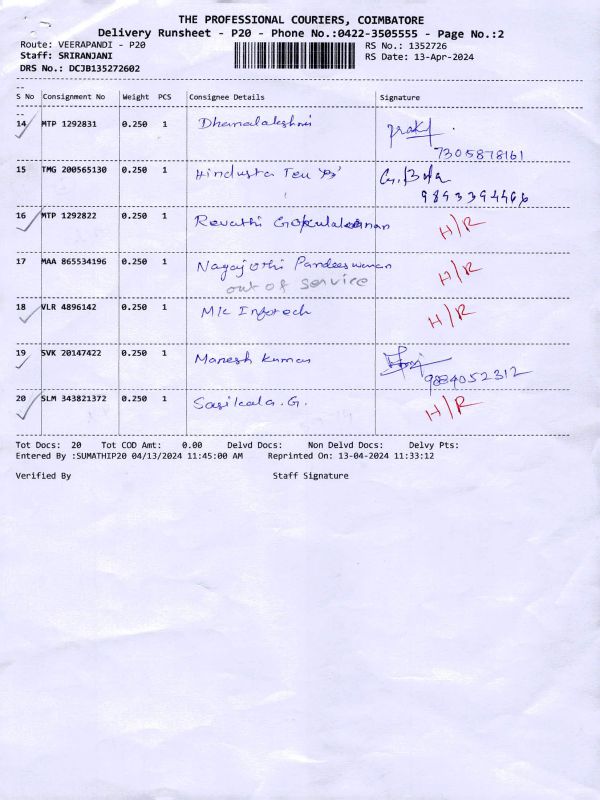 THE PROFESSIONAL COURIERS, COIMBATORE
Delivery Runsheet - P20 - Phone No.:0422-3505555 - Page No.:2
Route: VEERAPANDI - P20 RS No.: 1352726
Staff: SRIRANJANI RS Date: 13-Apr-2024
DRS No.: DCJB135272602
S No Consignment No Weight PCS Consignee Details Signature
14 MTP 1292831 0.250 1 Dhanalakshmi
7305878161
15 TMG 200565130 0.250 1 Hindusta
9893394466
16 MTP 1292822 0.250 1 Revathi H/R
17 MAA 865534196 0.250 1 Nagajothi Pandeeswaran H/R
out of service
18 VLR 4896142 0.250 1 M/c Infotech H/R
19 SVK 20147422 0.250 1 Manesh Kumar
9884052312
20 SLM 343821372 0.250 1 Sasikala. G. H/R
Tot Docs: 20 Tot COD Amt: 0.00 Delvd Docs: Non Delvd Docs: Delvy Pts:
Entered By :SUMATHIP20 04/13/2024 11:45:00 AM Reprinted On: 13-04-2024 11:33:12
Verified By Staff Signature